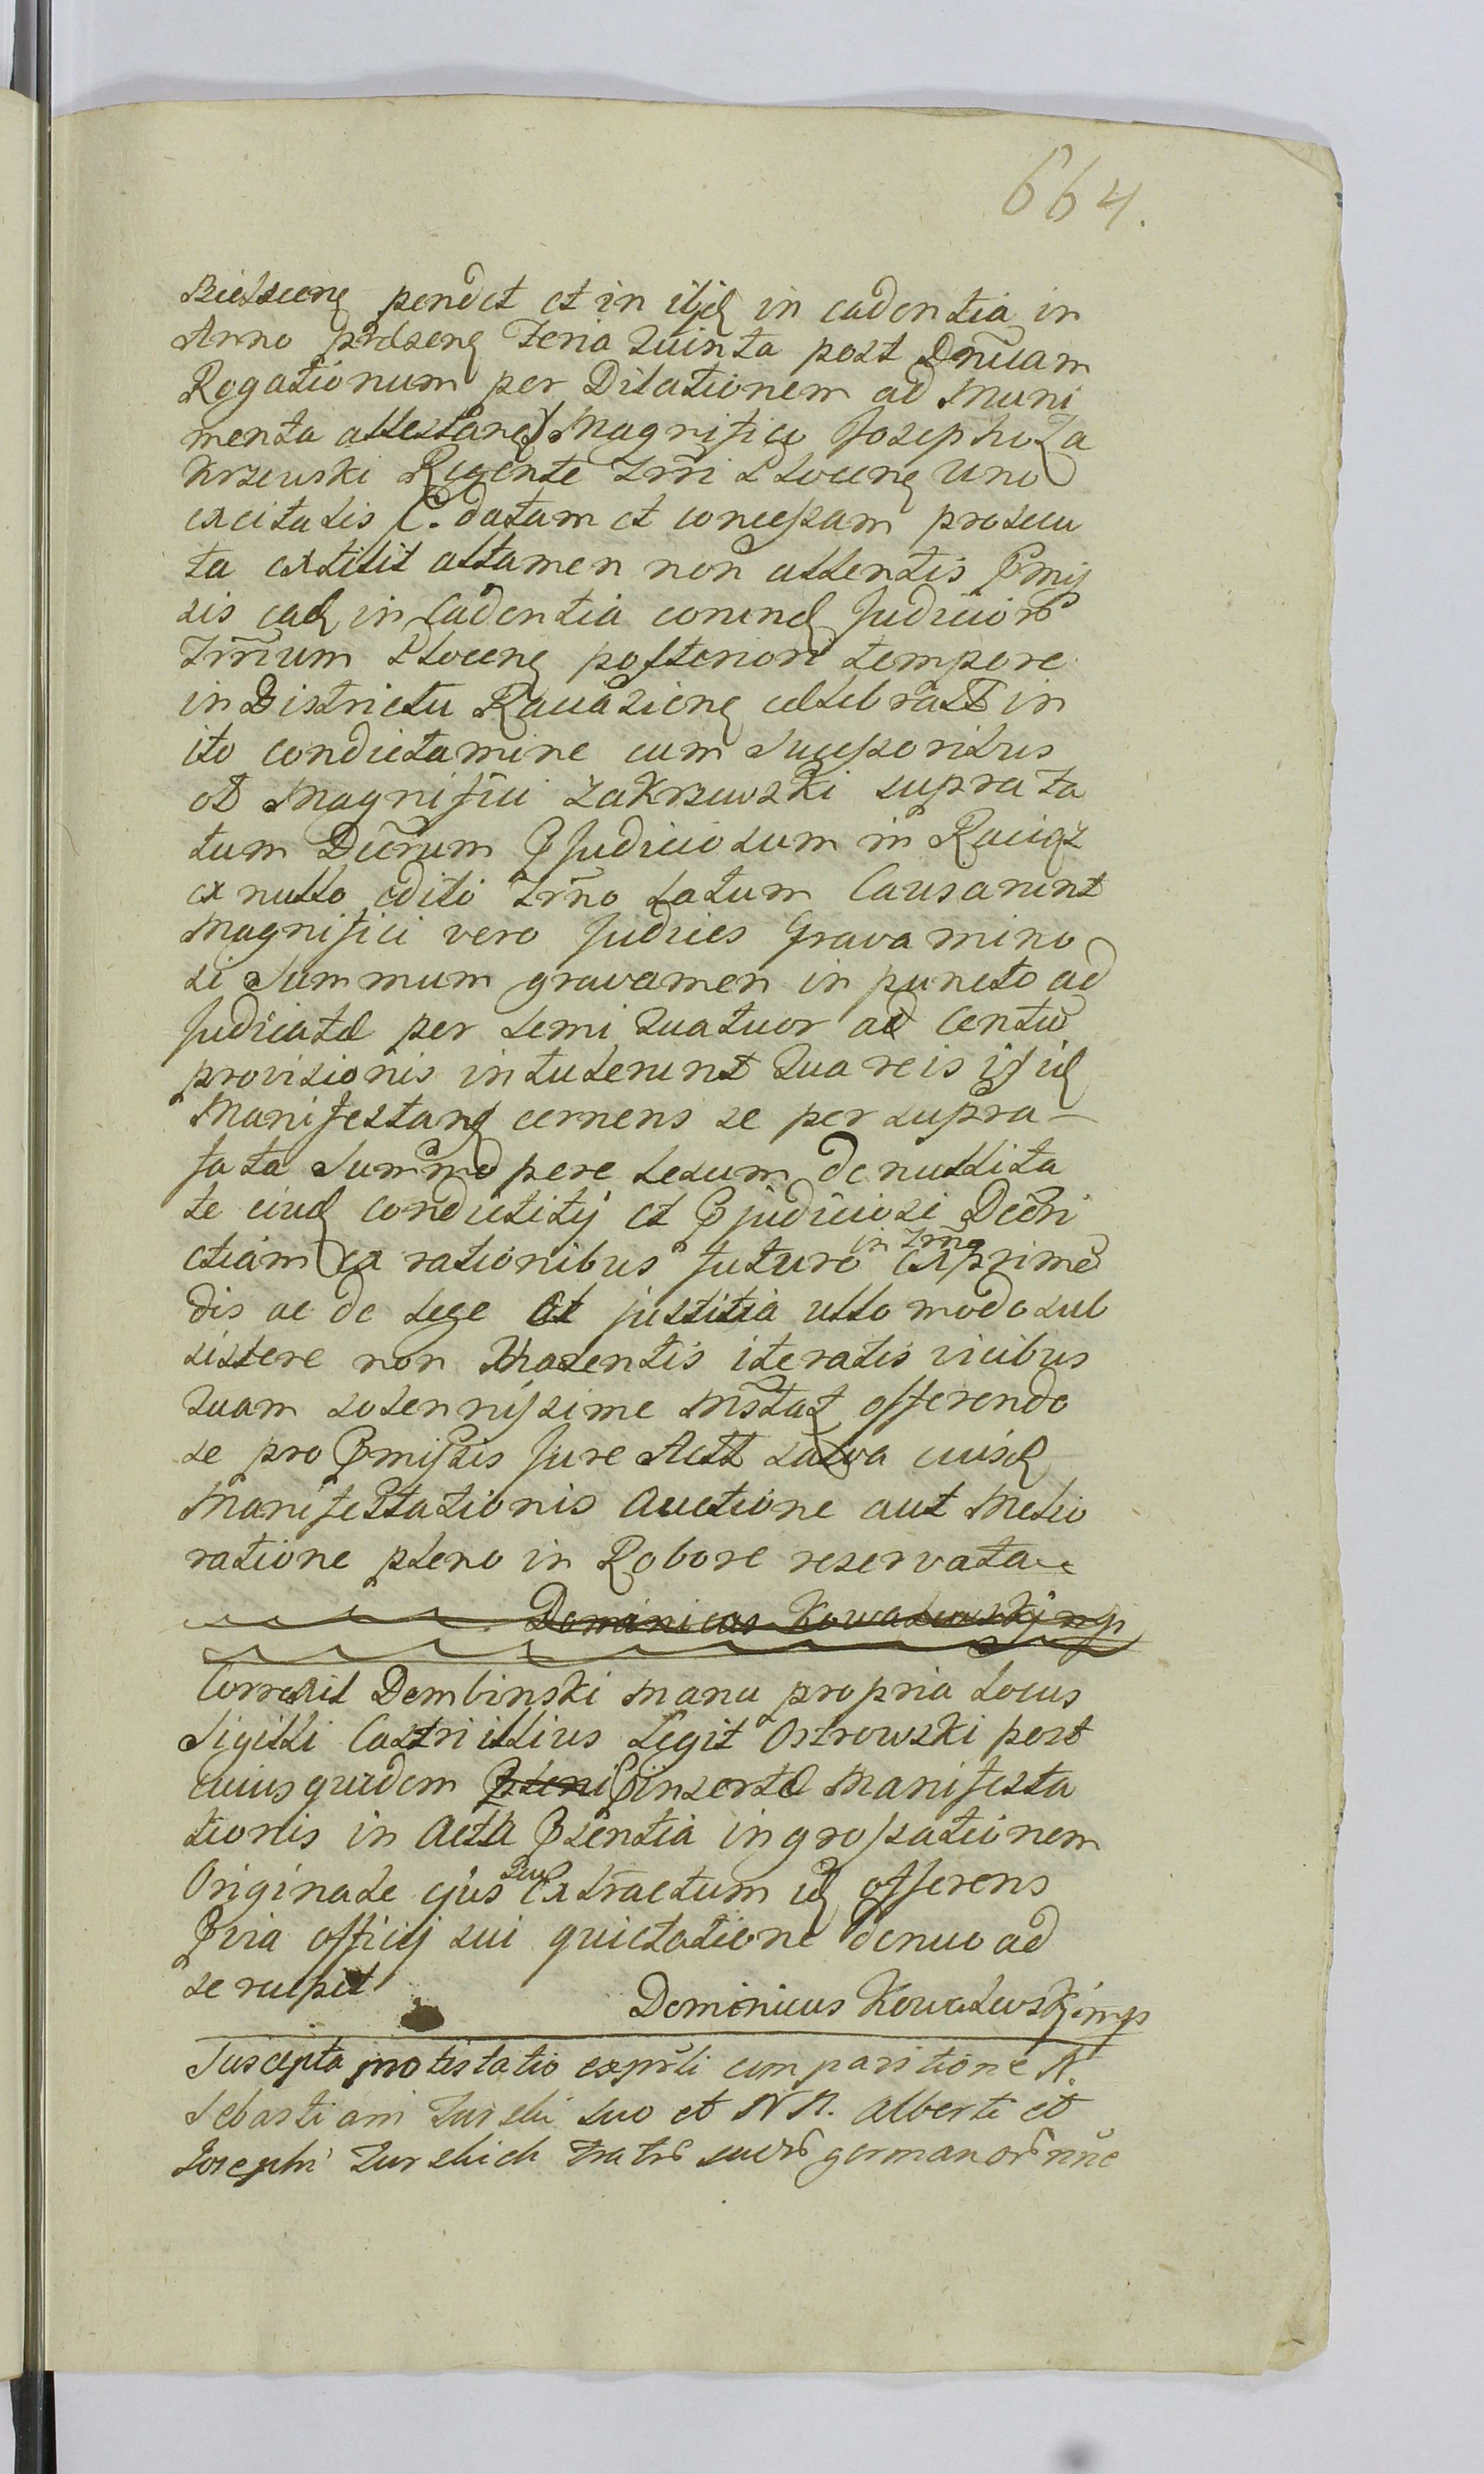 664.
Bielscen pendet et in iisd in cadentia in
Anno prdseng Feria Quinta post Dnicam
Rogationum per Dilationem ad Muni
menta attestand Magnifico Josepho Za
Krzewski Regente Trri Plocen uno
excitatis C. datam et concessam prosecu
ta extitit attamen non attentis Pmis
sis ead in Cadentia eorund Judicior
Trrium Plocen posteriori tempore
in District​u Raciazien celebrat in
ito condictamine cum Sucessoribus
ol Magnifici Zakrzewski suprafa
tum Decrum Pjudiciosum in Raciąż
ex nullo editi Trno latum Causarunt
Magnifici vero Judices Gravamino
si Summum gravamen in puncto ad
Judicatæ per semi quatuor ad Centū
provisionis intulerunt Qua re is ijsid
Manifestans cernens se per supra
fata Summo pere lesum de nullita
te eiusd condictitij et Pjudiciosi Decri
etiam ex rationibus futuro in Trno exprimē
dis ac de lege et justitia ullo modo sub
sistere non valentis iteratis vicibus
quam solennissime Mstat offerendo
se pro Pmissis Jure Actt salva cuisd
Manifestationis Auctione aut Melio
ratione pleno in Robore reservata
Dominicus Kowalewskj mp
Correxit Dembinski manu propria Locus
Sigilli Castri illius Legit Ostrowski post
cuius quidem Pinsertæ Manifesta
tionis in Acta Psentia ingrossationem
Originale ejus seu Extractum id offerens
Pvia officij sui quietatione denuo ad
se recepit
Dominicus Kowalewskj mp
Suscepta protestatio exprti comparitione N.
Sebastiani Turski suo et N N. Alberti et
Josephi Turskich fratr suor germanor nne